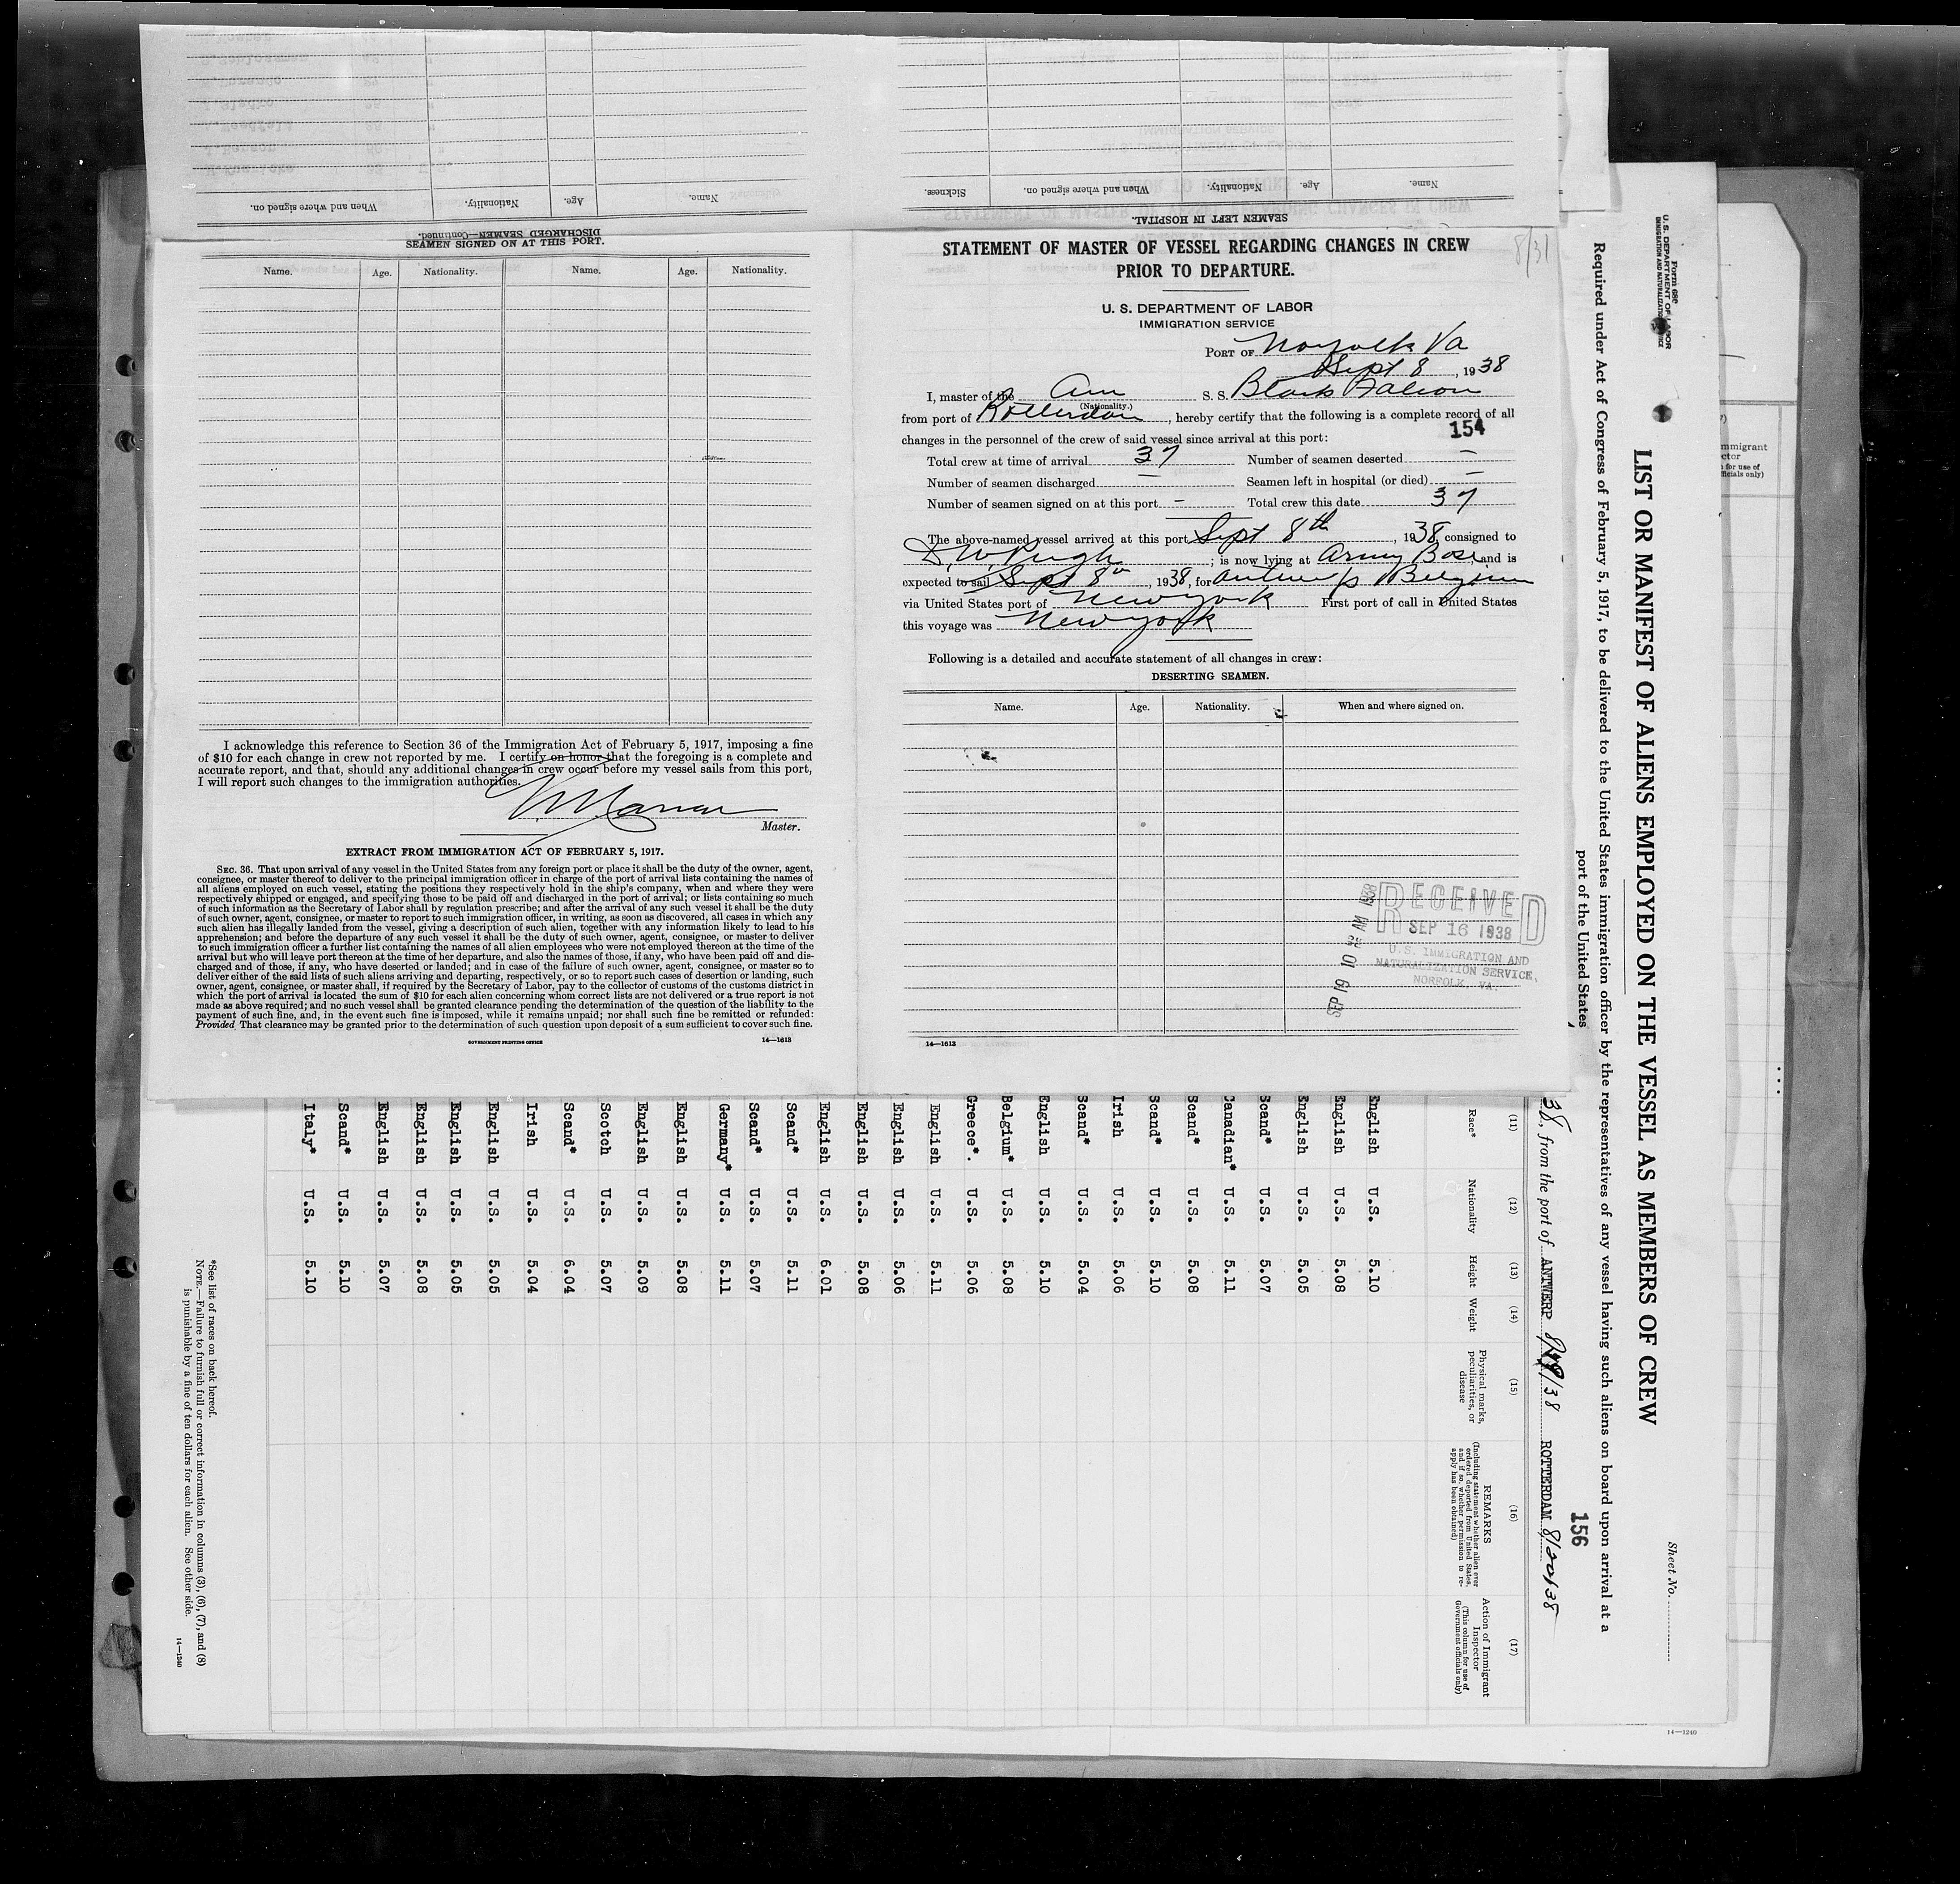 SEAMEN LEFT IN HOSPITAL.
Name.
Age.
Nationality.
When and where signed on.
Sickness.
DISCHARGED SEAMEN—Continued.
Name.
Age.
Nationality.
When and where signed on.
SEAMEN SIGNED ON AT THIS PORT.
Name. Age. Nationality. Name. Age. Nationality.
I acknowledge this reference to Section 36 of the Immigration Act of February 5, 1917, imposing a fine
of $10 for each change in crew not reported by me. I certify on honor that the foregoing is a complete and
accurate report, and that, should any additional changes in crew occur before my vessel sails from this port,
I will report such changes to the immigration authorities.
Master.
EXTRACT FROM IMMIGRATION ACT OF FEBRUARY 5, 1917.
SEC. 36. That upon arrival of any vessel in the United States from any foreign port or place it shall be the duty of the owner, agent,
consignee, or master thereof to deliver to the principal immigration officer in charge of the port of arrival lists containing the names of
all aliens employed on such vessel, stating the positions they respectively hold in the ship's company, when and where they were
respectively shipped or engaged, and specifying those to be paid off and discharged in the port of arrival; or lists containing so much
of such information as the Secretary of Labor shall by regulation prescribe; and after the arrival of any such vessel it shall be the duty
of such owner, agent, consignee, or master to report to such immigration officer, in writing, as soon as discovered, all cases in which any
such alien has illegally landed from the vessel, giving a description of such alien, together with any information likely to lead to his
apprehension; and before the departure of any such vessel it shall be the duty of such owner, agent, consignee, or master to deliver
to such immigration officer a further list containing the names of all alien employees who were not employed thereon at the time of the
arrival but who will leave port thereon at the time of her departure, and also the names of those, if any, who have been paid off and dis-
charged and of those, if any, who have deserted or landed; and in case of the failure of such owner, agent, consignee, or master so to
deliver either of the said lists of such aliens arriving and departing, respectively, or so to report such cases of desertion or landing, such
owner, agent, consignee, or master shall, if required by the Secretary of Labor, pay to the collector of customs of the customs district in
which the port of arrival is located the sum of $10 for each alien concerning whom correct lists are not delivered or a true report is not
made as above required; and no such vessel shall be granted clearance pending the determination of the question of the liability to the
payment of such fine, and, in the event such fine is imposed, while it remains unpaid; nor shall such fine be remitted or refunded:
Provided, That clearance may be granted prior to the determination of such question upon deposit of a sum sufficient to cover such fine.
GOVERNMENT PRINTING OFFICE 14—1613
8/31
STATEMENT OF MASTER OF VESSEL REGARDING CHANGES IN CREW
PRIOR TO DEPARTURE.
U. S. DEPARTMENT OF LABOR
IMMIGRATION SERVICE
PORT OF Norfolk Va
Sept 8, 1938
I, master of the Am S. S. Black Falcon
(Nationality.)
from port of Rotterdam, hereby certify that the following is a complete record of all
changes in the personnel of the crew of said vessel since arrival at this port:
154
Total crew at time of arrival 37 Number of seamen deserted –
Number of seamen discharged – Seamen left in hospital (or died) –
Number of seamen signed on at this port – Total crew this date 37
The above-named vessel arrived at this port Sept 8th, 1938, consigned to
D. W. Pugh; is now lying at Army Base, and is
expected to sail Sept 8th, 1938, for Antwerp Belgium
via United States port of New York First port of call in United States
this voyage was New York
Following is a detailed and accurate statement of all changes in crew:
DESERTING SEAMEN.
Name. Age. Nationality. When and where signed on.
RECEIVED
SEP 16 1938
U.S. IMMIGRATION AND
NATURALIZATION SERVICE,
NORFOLK, VA.
SEP 19 10 AM 1938
14—1613
Form 680
U. S. DEPARTMENT OF LABOR
IMMIGRATION AND NATURALIZATION SERVICE
Sheet No.
LIST OR MANIFEST OF ALIENS EMPLOYED ON THE VESSEL AS MEMBERS OF CREW
Required under Act of Congress of February 5, 1917, to be delivered to the United States immigration officer by the representatives of any vessel having such aliens on board upon arrival at a
port of the United States
156
38, from the port of ANTWERP ROTTERDAM 8/20/38
(11) (12) (13) (14) (15) (16) (17)
Race* Nationality Height Weight Physical marks, peculiarities, or disease REMARKS (Including statement whether alien ever ordered deported from United States, and if so, whether permission to reapply has been obtained) Action of Immigrant Inspector (This column for use of Government officials only)
English U.S. 5.10
English U.S. 5.08
English U.S. 5.05
Scand* U.S. 5.07
Canadian* U.S. 5.11
Scand* U.S. 5.08
Scand* U.S. 5.10
Irish U.S. 5.06
Scand* U.S. 5.04
English U.S. 5.10
Belgium* U.S. 5.08
Greece*. U.S. 5.06
English U.S. 5.11
English U.S. 5.06
English U.S. 5.08
English U.S. 6.01
Scand* U.S. 5.11
Scand* U.S. 5.07
Germany* U.S. 5.11
English U.S. 5.08
English U.S. 5.09
Scotch U.S. 5.07
Scand* U.S. 6.04
Irish U.S. 5.04
English U.S. 5.05
English U.S. 5.05
English U.S. 5.08
English U.S. 5.07
Scand* U.S. 5.10
Italy* U.S. 5.10
*See list of races on back hereof.
NOTE.—Failure to furnish full or correct information in columns (3), (6), (7), and (8)
is punishable by a fine of ten dollars for each alien. See other side.
14—1240
14—1240